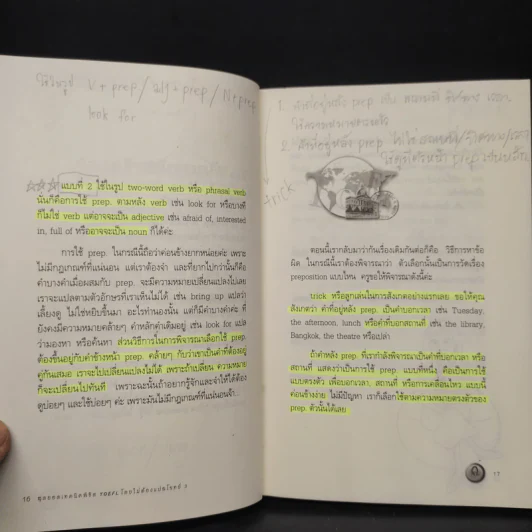 ใช้ในรูป V + prep / adj + prep / N + prep
look for
แบบที่ 2 ใช้ในรูป two-word verb หรือ phrasal verb
นั่นก็คือการใช้ prep. ตามหลัง verb เช่น look for หรือบางที
ก็ไม่ใช่ verb แต่อาจจะเป็น adjective เช่น afraid of, interested
in, full of หรืออาจจะเป็น noun ก็ได้ค่ะ
การใช้ prep. ในกรณีนี้ถือว่าค่อนข้างยากหน่อยค่ะ เพราะ
ไม่มีกฎเกณฑ์ที่แน่นอน แต่เราต้องจำ และที่ยากไปกว่านั้นก็คือ
คำบางคำเมื่อผสมกับ prep. จะมีความหมายเปลี่ยนแปลงไปเลย
เราจะแปลตามตัวอักษรที่เราเห็นไม่ได้ เช่น bring up แปลว่า
เลี้ยงดู ไม่ใช่หยิบขึ้นมา อะไรทำนองนั้น แต่ก็มีคำบางคำค่ะ ที่
ยังคงมีความหมายคล้ายๆ คำหลักคำเดิมอยู่ เช่น look for แปลว่า
มองหา หรือค้นหา ส่วนวิธีในการพิจารณาเลือกใช้ prep.
ต้องขึ้นอยู่กับคำข้างหน้า prep. คล้ายๆ กับว่าเขาเป็นคำที่ต้องอยู่
คู่กันเสมอ เราจะไปเปลี่ยนแปลงไม่ได้ เพราะถ้าเปลี่ยน ความหมาย
ก็จะเปลี่ยนไปทันที เพราะฉะนั้นถ้าอยากรู้จักและจำให้ได้ต้อง
ดูบ่อยๆ และใช้บ่อยๆ ค่ะ เพราะมันไม่มีกฎเกณฑ์ที่แน่นอนจ้า
16 สุดยอดเทคนิคพิชิต TOEFL โดยไม่ต้องแปลโจทย์ 2
1. คำที่อยู่หลัง prep เป็น สถานที่
2. คำที่อยู่หลัง prep ไม่ใช่ สถานที่
trick
ตอนนี้เรากลับมาว่ากันเรื่องเดิมกันต่อก็คือ วิธีการหาข้อ
ผิด ในกรณีนี้เราต้องพิจารณาว่า ตัวเลือกนั้นเป็นการวัดเรื่อง
preposition แบบไหน ครูขอให้พิจารณาดังนี้คะ
trick หรือลูกเล่นในการสังเกตอย่างแรกเลย ขอให้คุณ
สังเกตว่า คำที่อยู่หลัง prep. เป็นคำบอกเวลา เช่น Tuesday,
the afternoon, lunch หรือคำที่บอกสถานที่ เช่น the library,
Bangkok, the theatre หรือเปล่า
ถ้าคำหลัง prep. ที่เรากำลังพิจารณาเป็นคำที่บอกเวลา หรือ
สถานที่ แสดงว่าเป็นการใช้ prep. แบบที่หนึ่ง คือเป็นการใช้
แบบตรงตัว เพื่อบอกเวลา, สถานที่ หรือการเคลื่อนไหว แบบนี้
ค่อนข้างง่าย ไม่มีปัญหา เราก็เลือกใช้ตามความหมายตรงตัวของ
prep. ตัวนั้นได้เลย
17